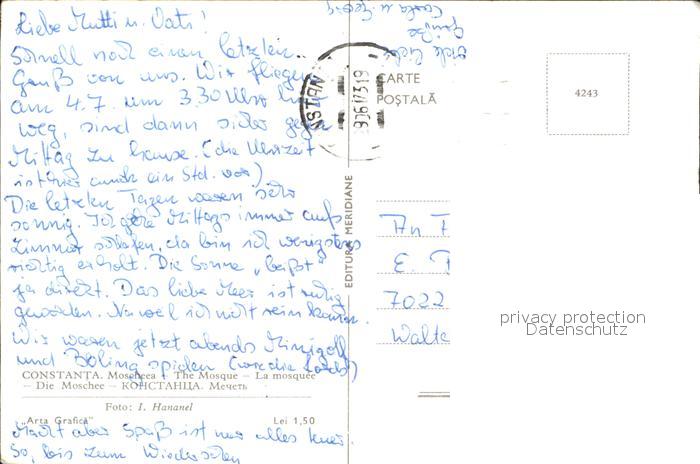 Liebe Mutti u. Vati!
Schnell noch einen letzten
Gruß von uns. Wir fliegen
am 4.7. um 3.30 Uhr hier
weg, sind dann sicher gegen
Mittag zu hause. (die Uhrzeit
ist hier auch ein Std. vor)
Die letzten Tagen waren sehr
sonnig. Ich gehe Mittags immer aufs
Zimmer schlafen, da bin ich wenigstens
richtig erholt. Die Sonne „beißt“
ja direkt. Das liebe Meer ist ruhig
geworden. Na weil ich nicht rein kann.
Wir waren jetzt abends Minigolf
und Boling spielen
CONSTANTA. Moscheea — The Mosque — La mosquée
— Die Moschee — КОНСТАНЦА. Мечеть
Foto: I. Hananel
„Arta Grafică“ Lei 1,50
Macht aber Spaß ist nur alles teuer.
So, bis zum Wiedersehen
Viele liebe
Grüße
EDITURA MERIDIANE
CARTE
POȘTALĂ
4243
An F
E. T
7022
Walte
privacy protection
Datenschutz